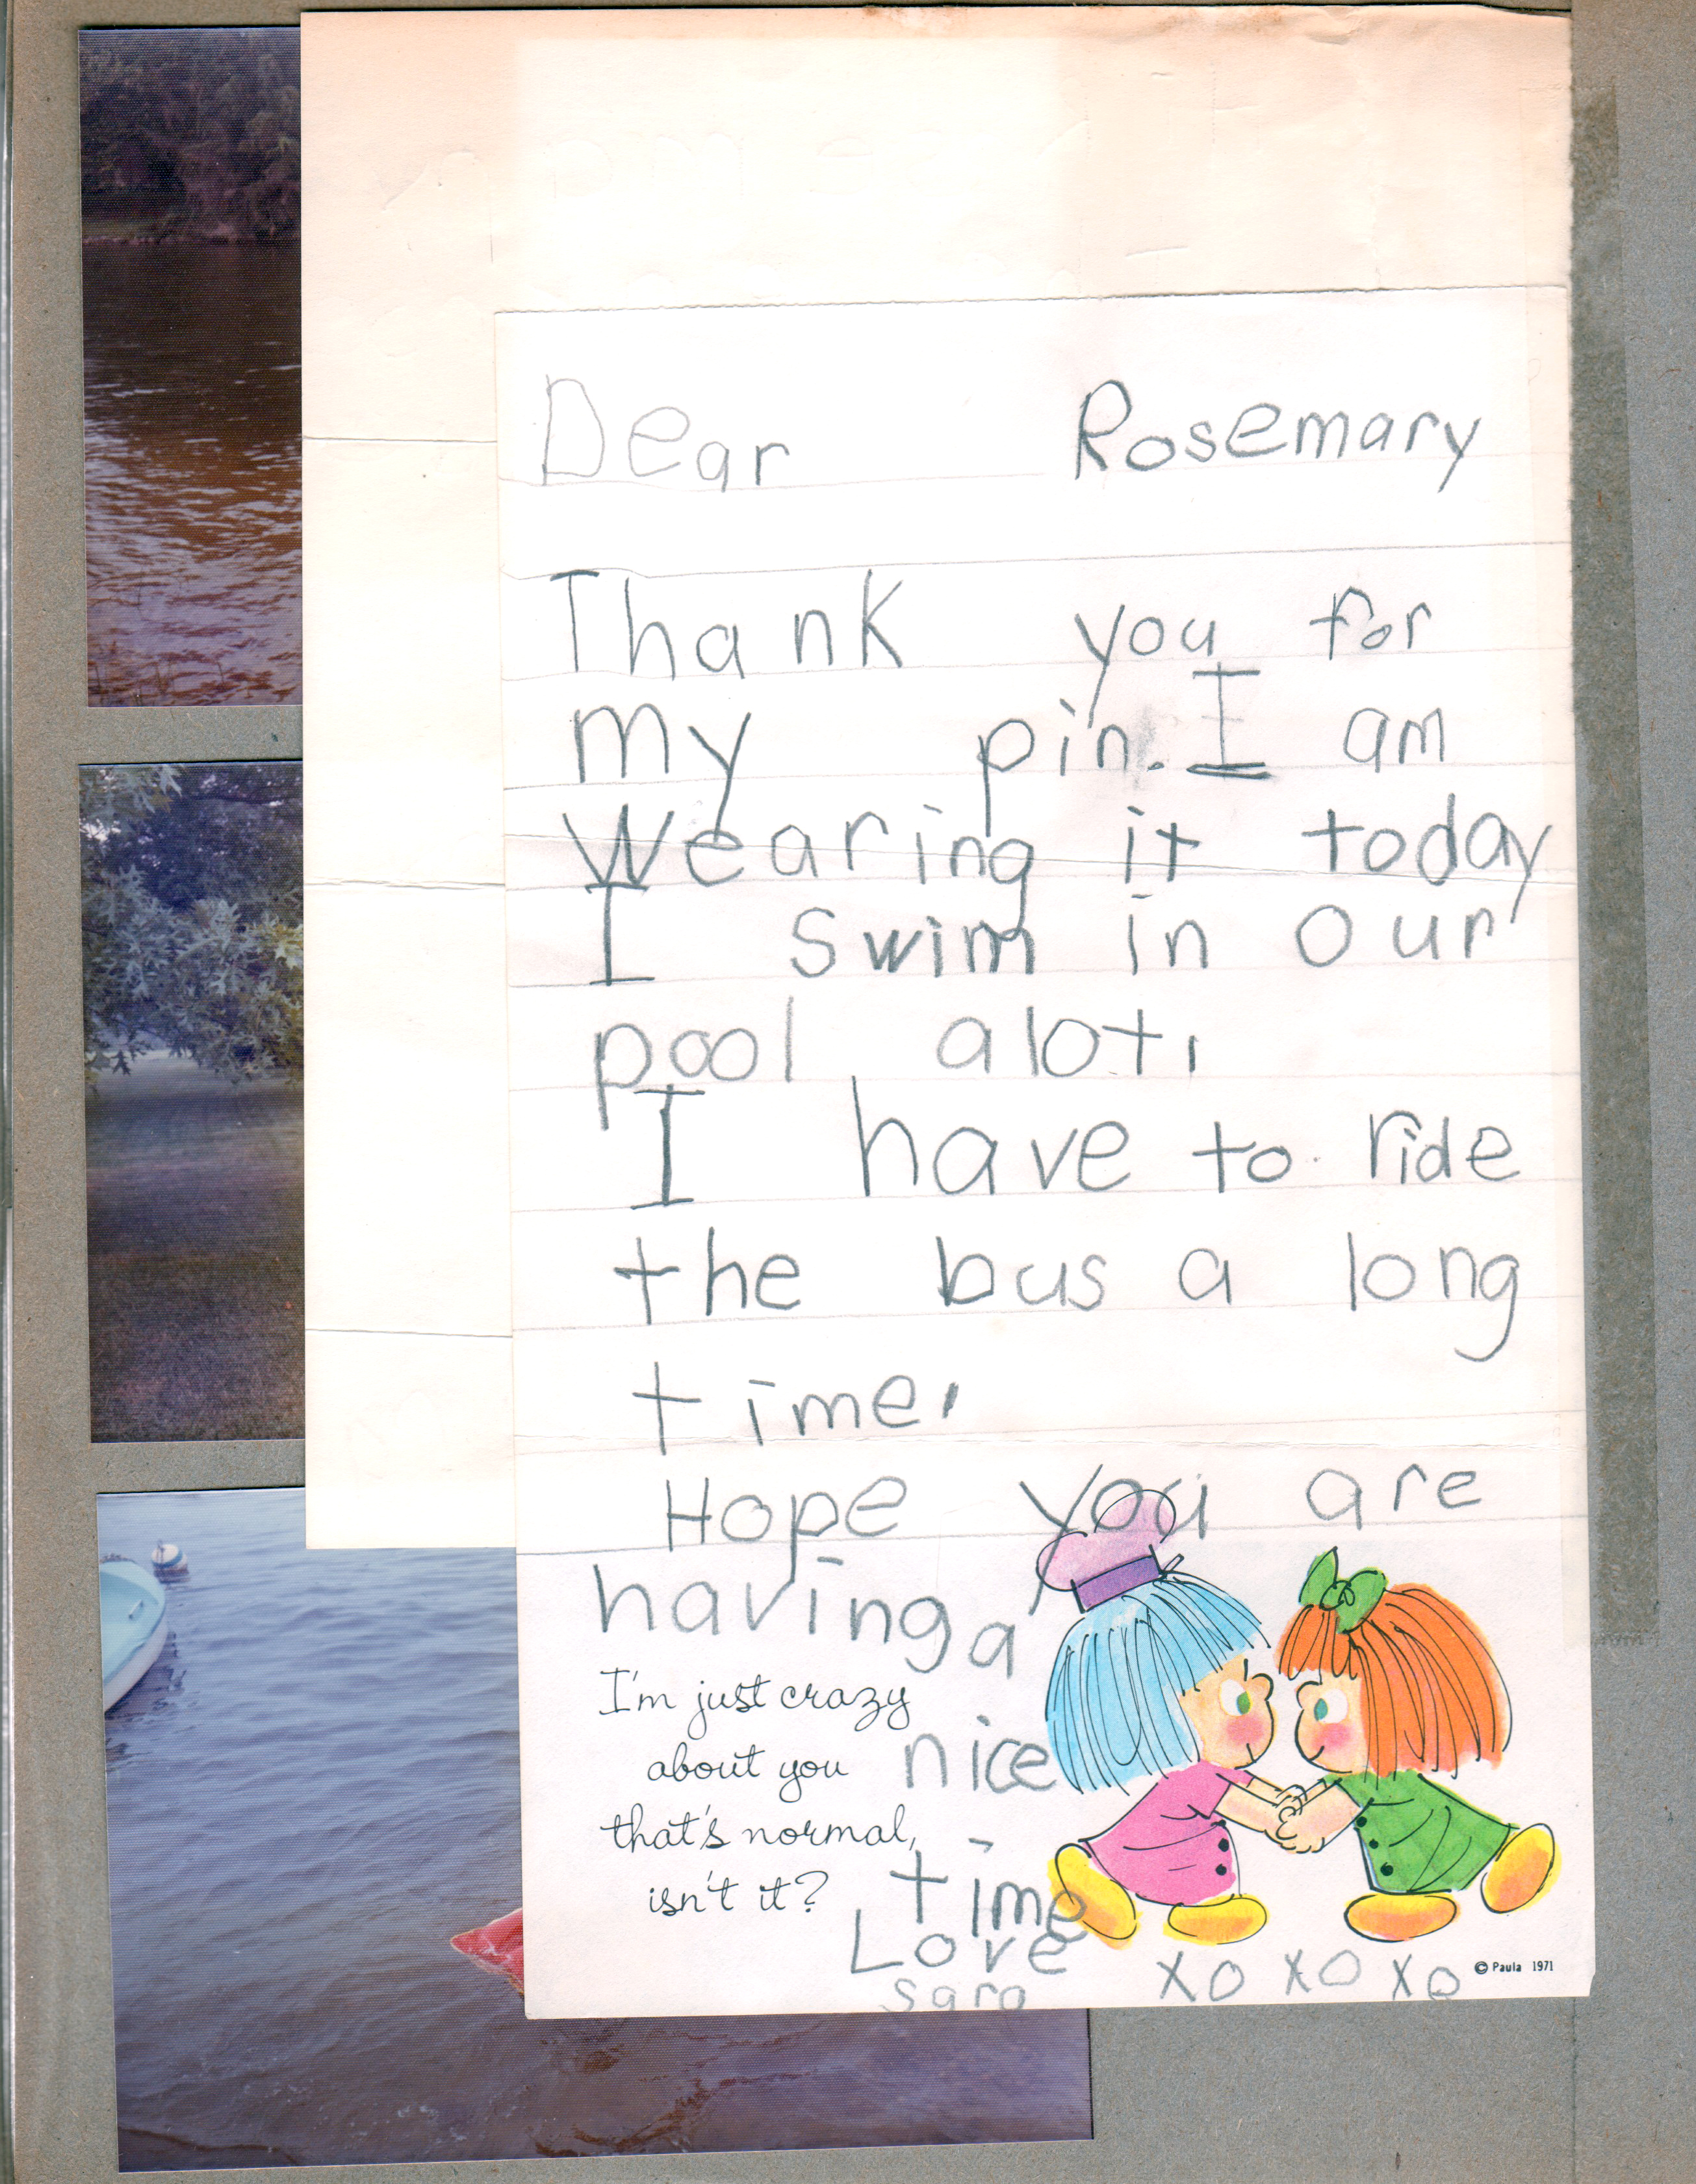 Dear Rosemary
Thank you for
my pin. I am
wearing it today
I swim in our
pool alot.
I have to ride
the bus a long
time.
Hope you are
having a
nice
time
Love
sara
xo xo xo
I'm just crazy
about you
that's normal,
isn't it?
© Paula 1971